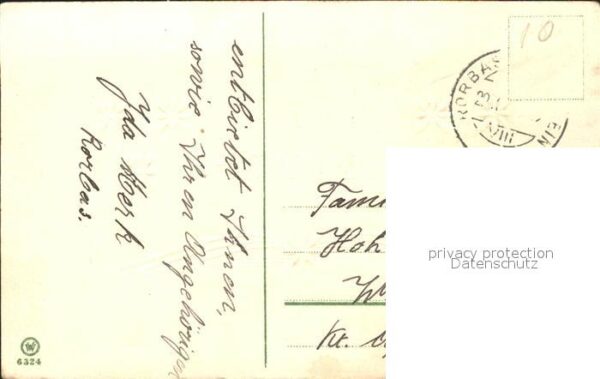 entbietet Ihnen,
sowie Ihren Angehörigen
Ida Merk
Rorbas.
10
RORBAS
VIII
Fami
Hoh
Kt.
privacy protection
Datenschutz
6324